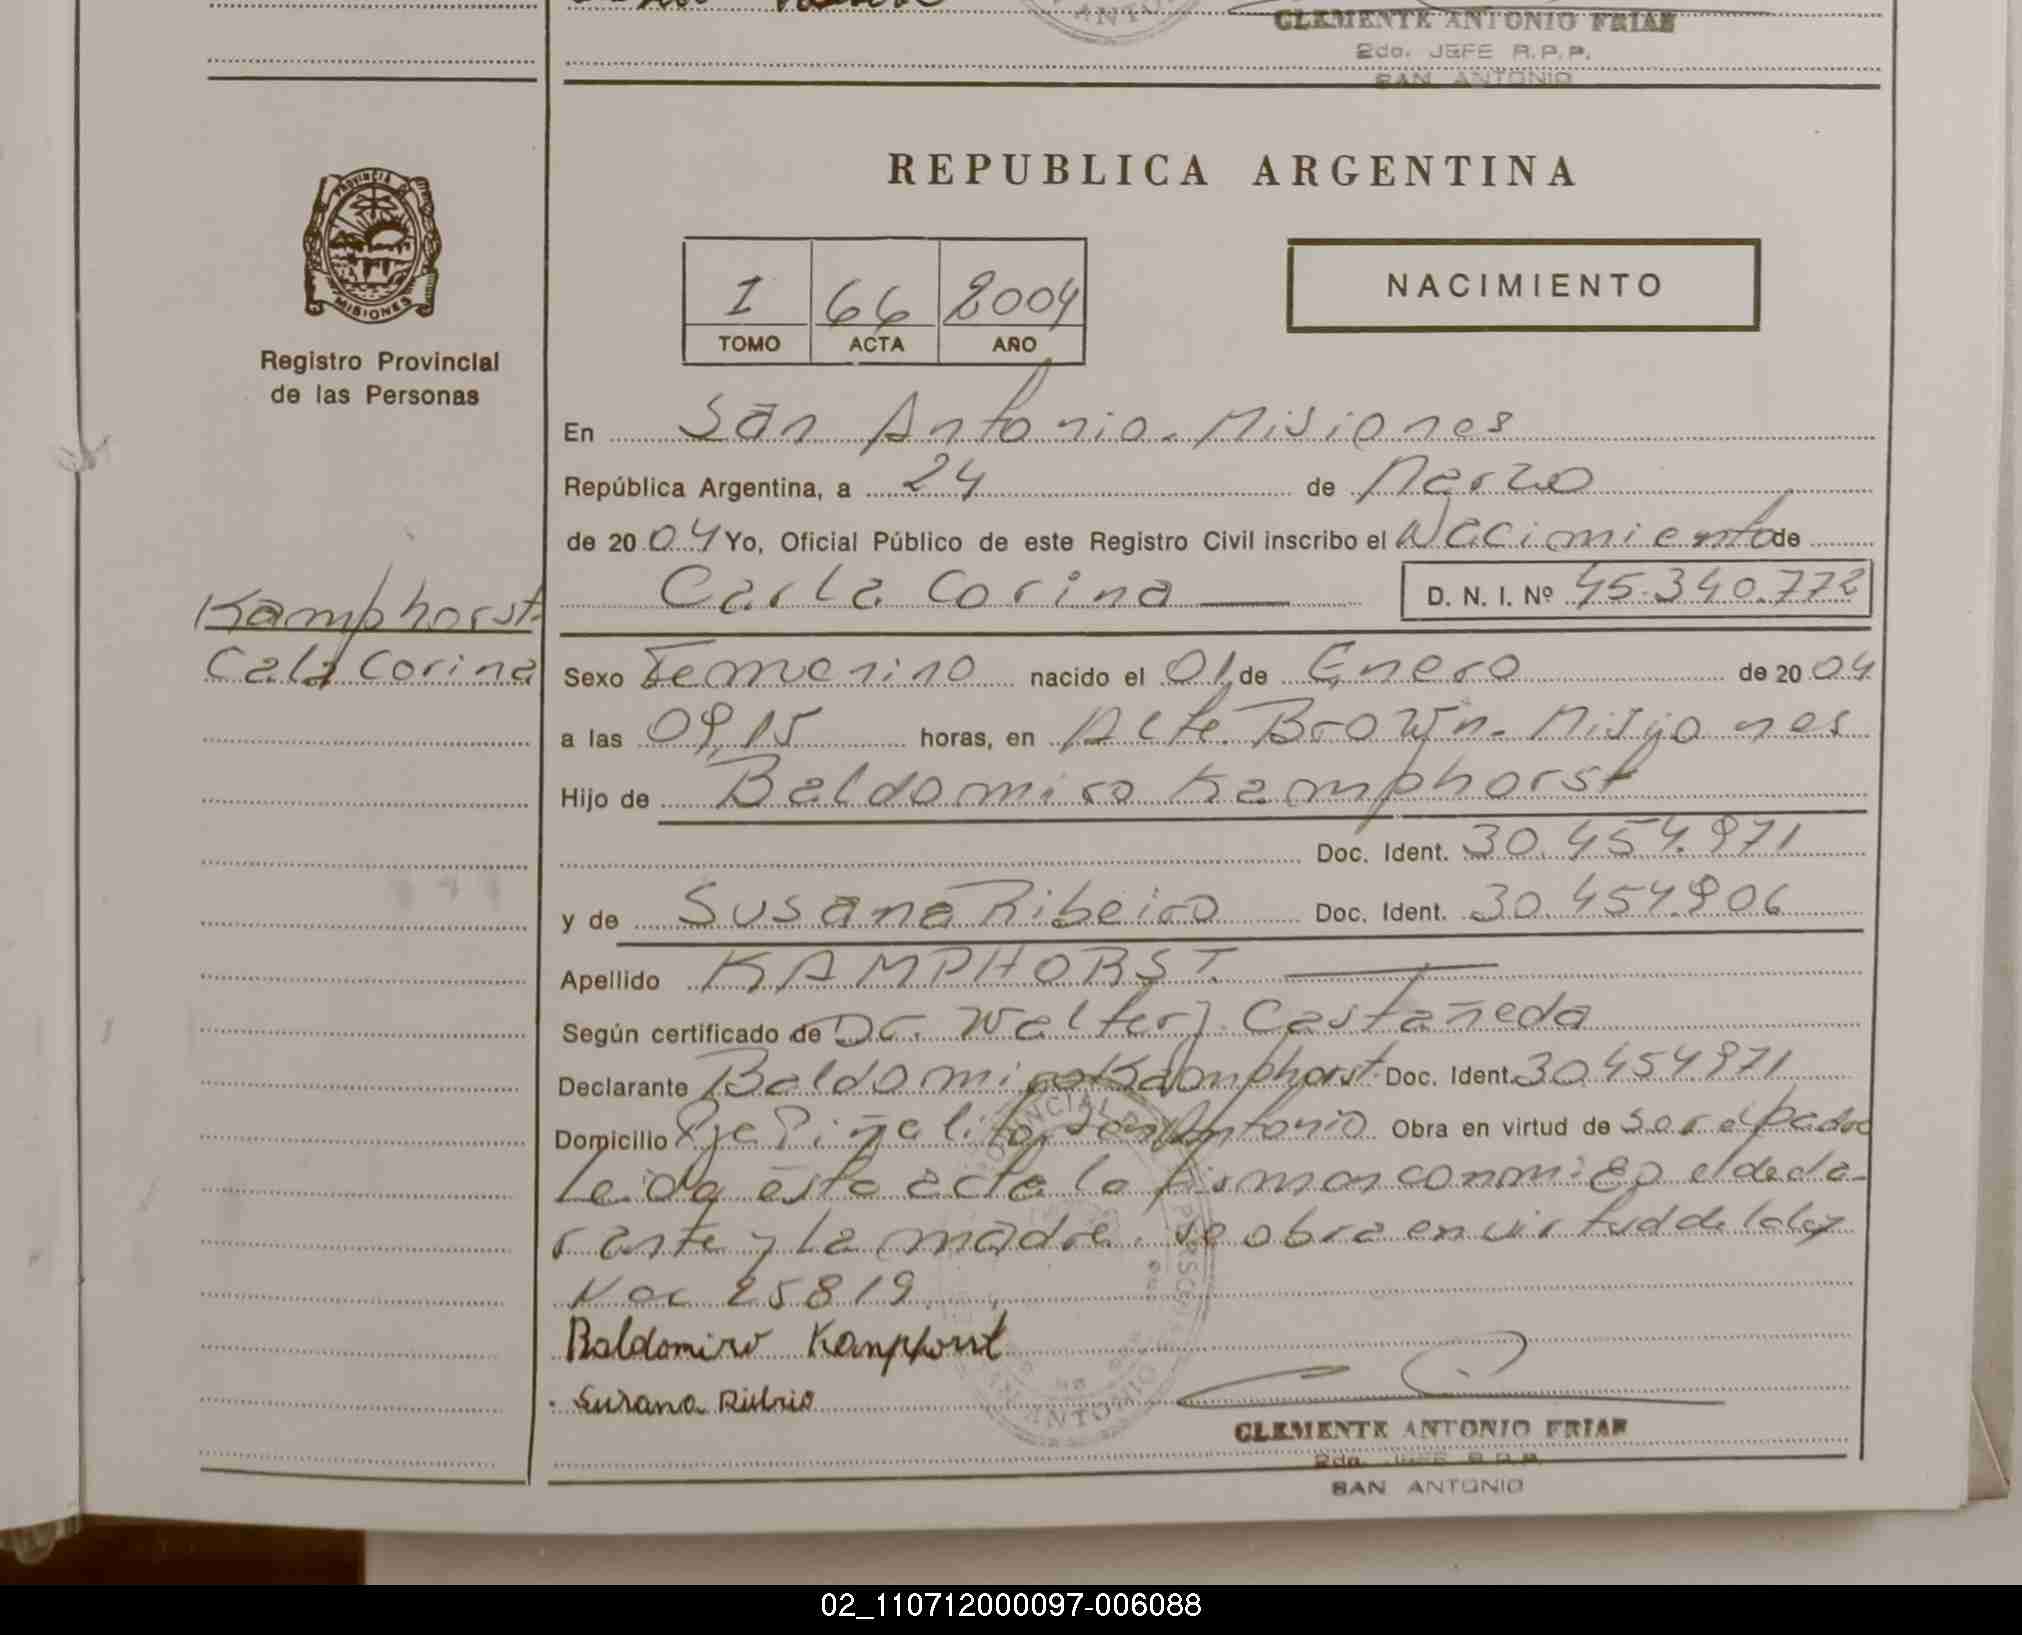 CLEMENTE ANTONIO FRIAS
2do. JEFE R.P.P.
SAN ANTONIO
PROVINCIA DE
MISIONES
Registro Provincial
de las Personas
REPUBLICA ARGENTINA
I 66 2004
TOMO ACTA AÑO
NACIMIENTO
En San Antonio-Misiones
República Argentina, a 24 de Marzo
de 2004 Yo, Oficial Público de este Registro Civil inscribo el Nacimiento de
Carla Corina — D. N. I. Nº 45.340.772
Kamphorst
Cala Corina
Sexo Femenino nacido el 01 de Enero de 2004
a las 09,15 horas, en Alte. Brown-Misiones
Hijo de Baldomiro Kamphorst
Doc. Ident. 30.454.971
y de Susana Ribeiro Doc. Ident. 30.454.906
Apellido KAMPHORST. —
Según certificado de Dr. Walter J. Castañeda
Declarante Baldomiro Kamphorst Doc. Ident. 30.454.971
Domicilio Pje Piñalito San Antonio Obra en virtud de ser el padre
Leida esta acta la firman conmigo el decla-
rante y la madre. se obra en virtud de la ley
Nac 25819.
Baldomiro Kamphorst
Susana Ribeiro
CLEMENTE ANTONIO FRIAS
2do. JEFE R.P.P.
SAN ANTONIO
02_110712000097-006088